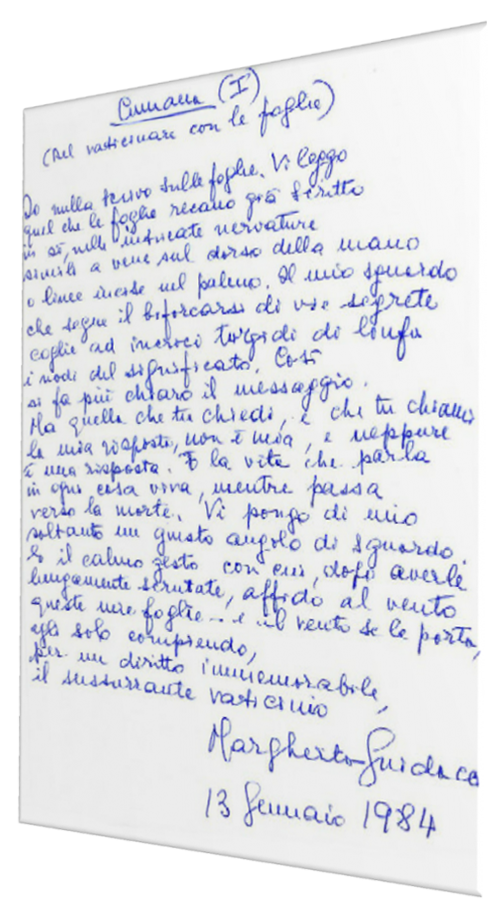 Cumana (I)
(Del vaticinare con le foglie)
Io nulla scrivo sulle foglie. Vi leggo
quel che le foglie recano già scritto
in sé, nelle intricate nervature
simili a vene sul dorso della mano
o linee incise nel palmo. Il mio sguardo
che segue il biforcarsi di vie segrete
coglie ad incroci turgidi di linfa
i nodi del significato. Così
si fa più chiaro il messaggio.
Ma quella che tu chiedi, e che tu chiami
la mia risposta, non è mia, e neppure
è una risposta. È la vita che parla
in ogni cosa viva, mentre passa
verso la morte. Vi pongo di mio
soltanto un giusto angolo di sguardo.
E il calmo gesto con cui, dopo averle
lungamente scrutate, affido al vento
queste mie foglie... e il vento se le porta,
egli solo comprendo,
per un diritto immemorabile,
il sussurrante vaticinio
Margherita Guidacci
13 Gennaio 1984